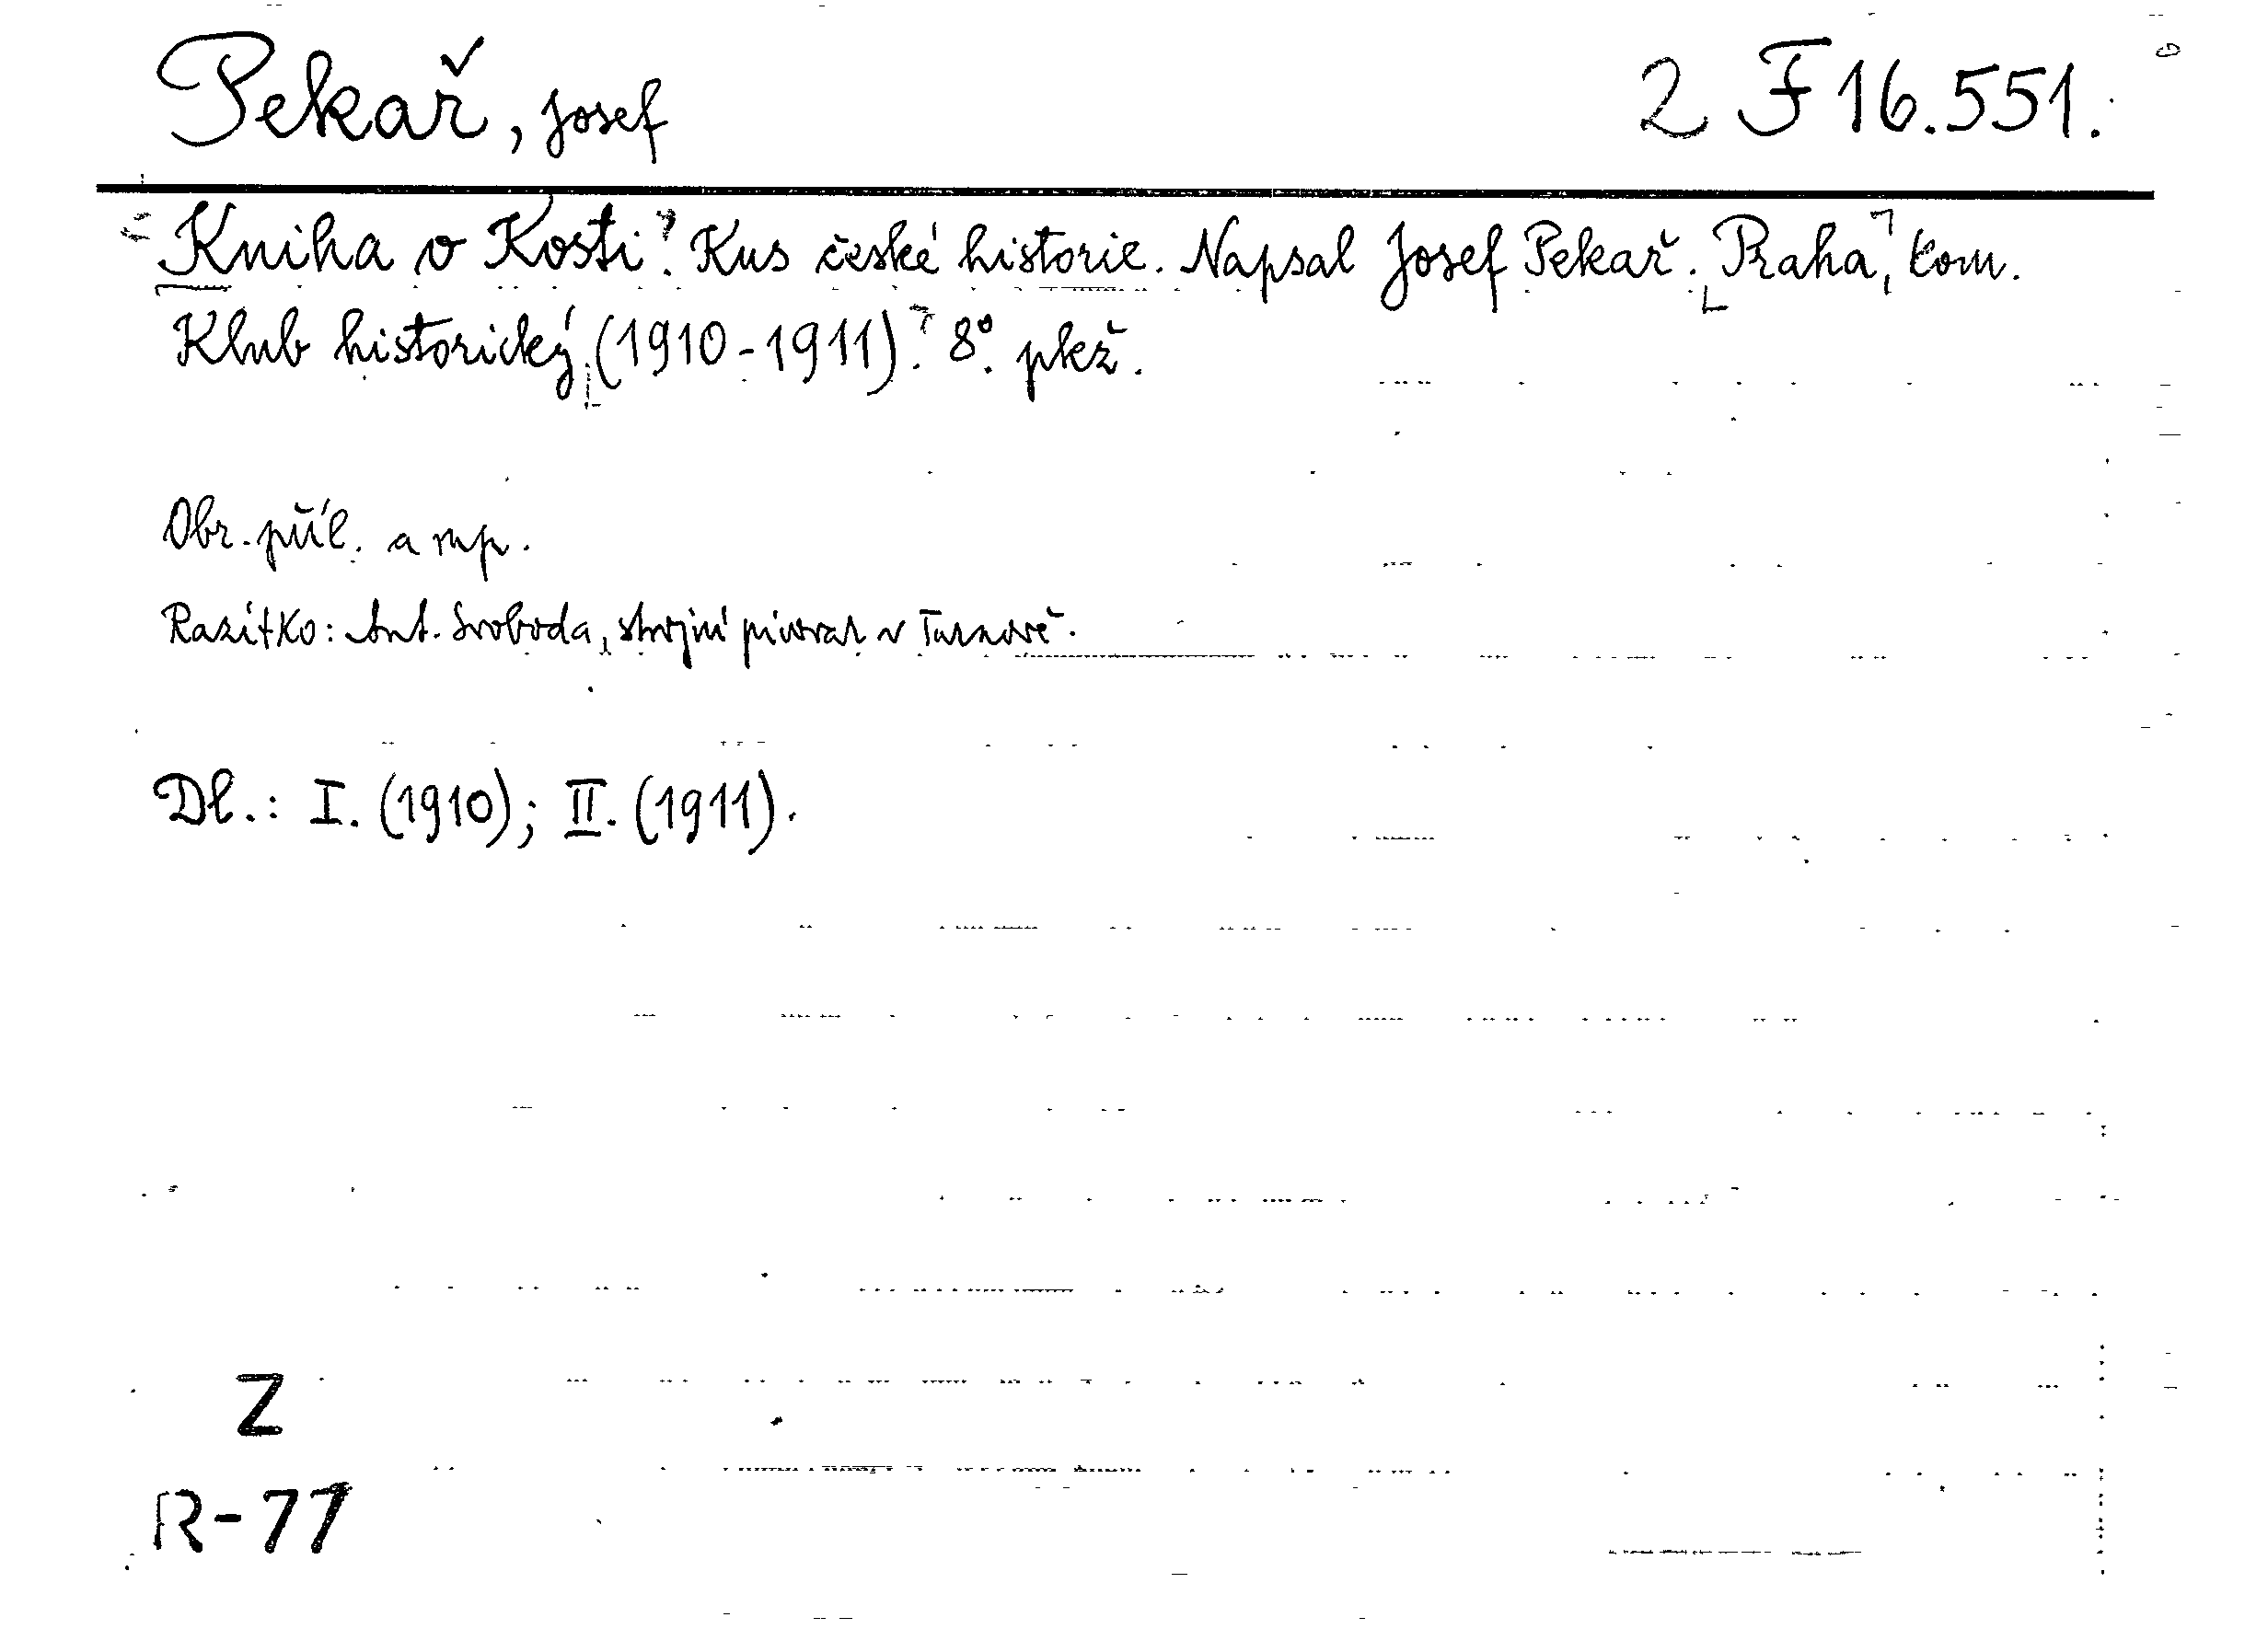 Pekař, Josef 2 F 16.551.
Kniha o Kosti. Kus české historie. Napsal Josef Pekař. Praha, kom.
Klub historický (1910-1911). 8°. pkž.
Obr. příl. a mp.
Razítko: Ant. Svoboda, strojní pivovar v Turnově.
Dl.: I. (1910); II. (1911).
Z
R-77